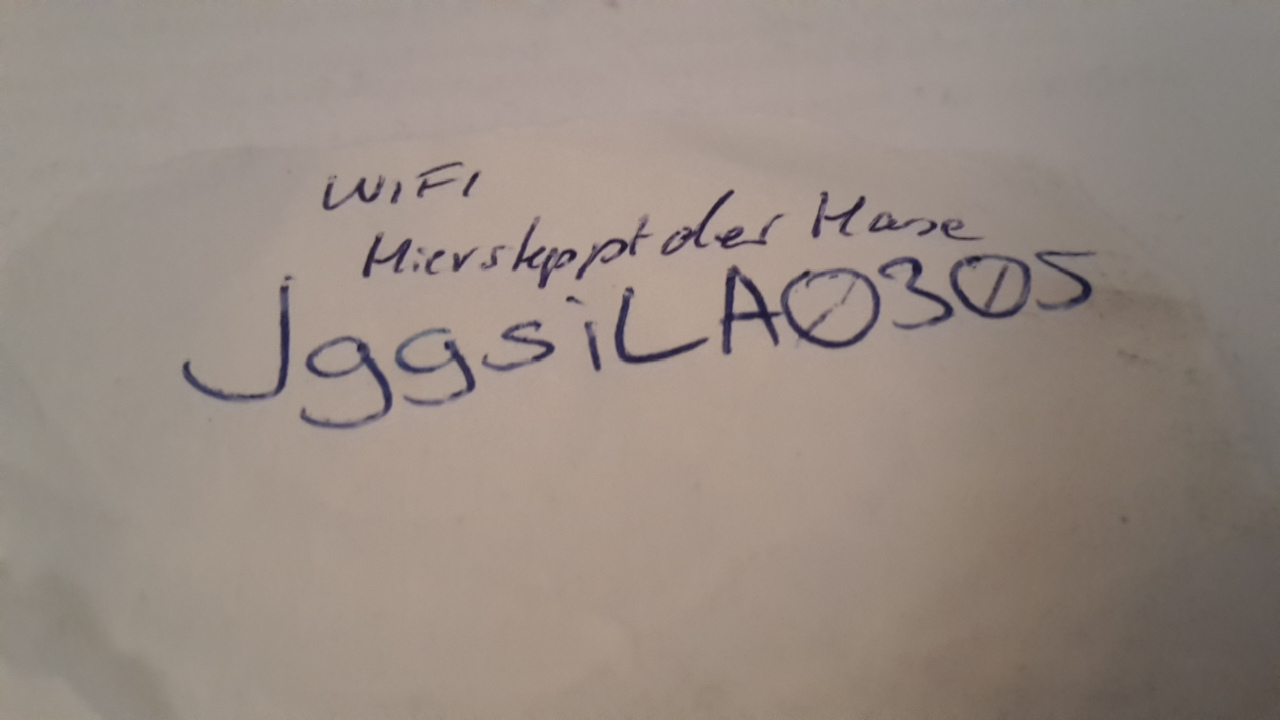 WIFI
Hiersteppt der Hase
JggsiLA0305